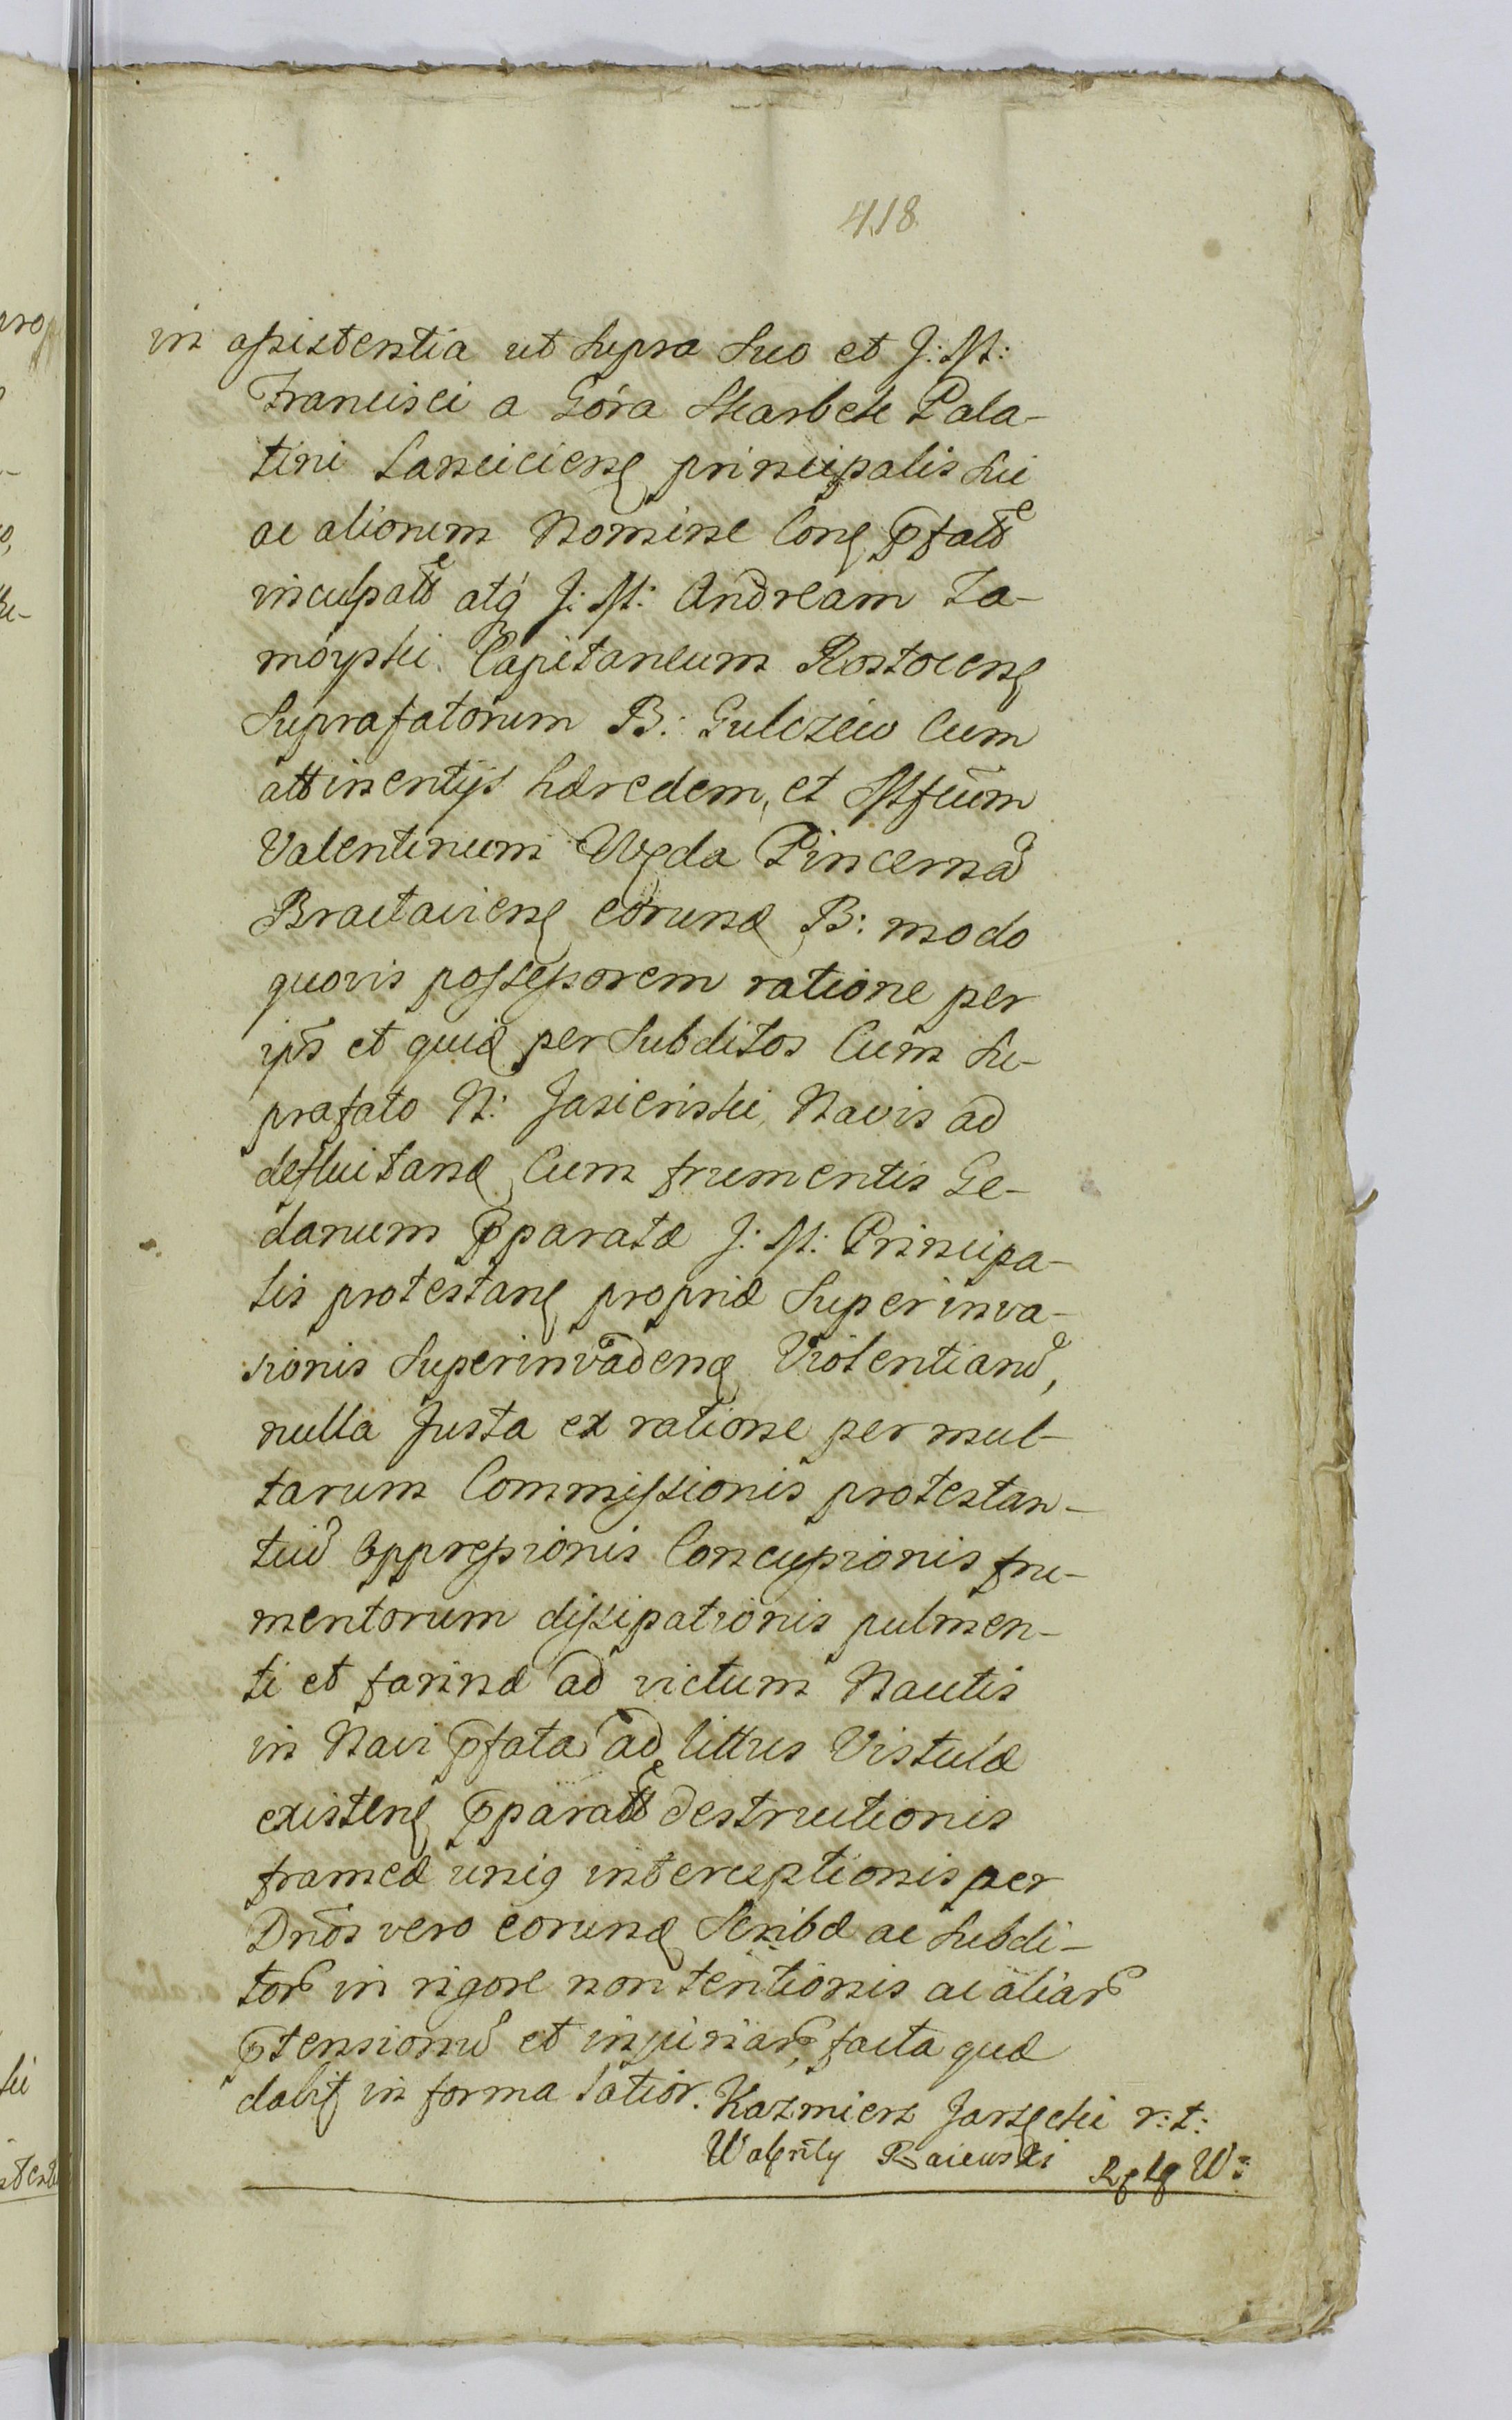 418
in assistentia ut supra suo et J: M:
Francisci a Góra Skarbek Pala-
tini Lancicien principalis sui
ac aliorum Nomine Con p̄fatt
inculpatt atq J: M: Andream Za-
moyski Capitaneum Rostocen
Suprafatorum B: Gulczew Cum
attinentijs hæredem, et Mfcum
Valentinum Węda Pincernā
Bractavien eorund B: modo
quovis possessorem ratione per
ip̄s et quid per Subditos Cum Su-
prafato N: Jasienski, Navis ad
defluitand Cum frumentis Ge-
danum p̄paratæ J: M: Principa-
lis protestan propriæ Superinva-
sionis Superinvādend Violentiand,
nulla Justa ex ratione per mul-
tarum Commissionis protestan-
tiū oppressionis Concussionis fru-
mentorum dissipationis pulmen-
ti et farinæ ad victum Nautis
in Navi p̄fata ad littus Vistulæ
existen p̄paratt destructionis
frameæ uniq interceptionis per
Dn̄os vero eorund Scribæ ac Subdi-
tor in rigore non tentionis ac aliar
p̄tensionū et injuriar, facta quæ
dabit in forma latior. Kazmierz Jarzęcki r: t:
Walęnty Raiewski